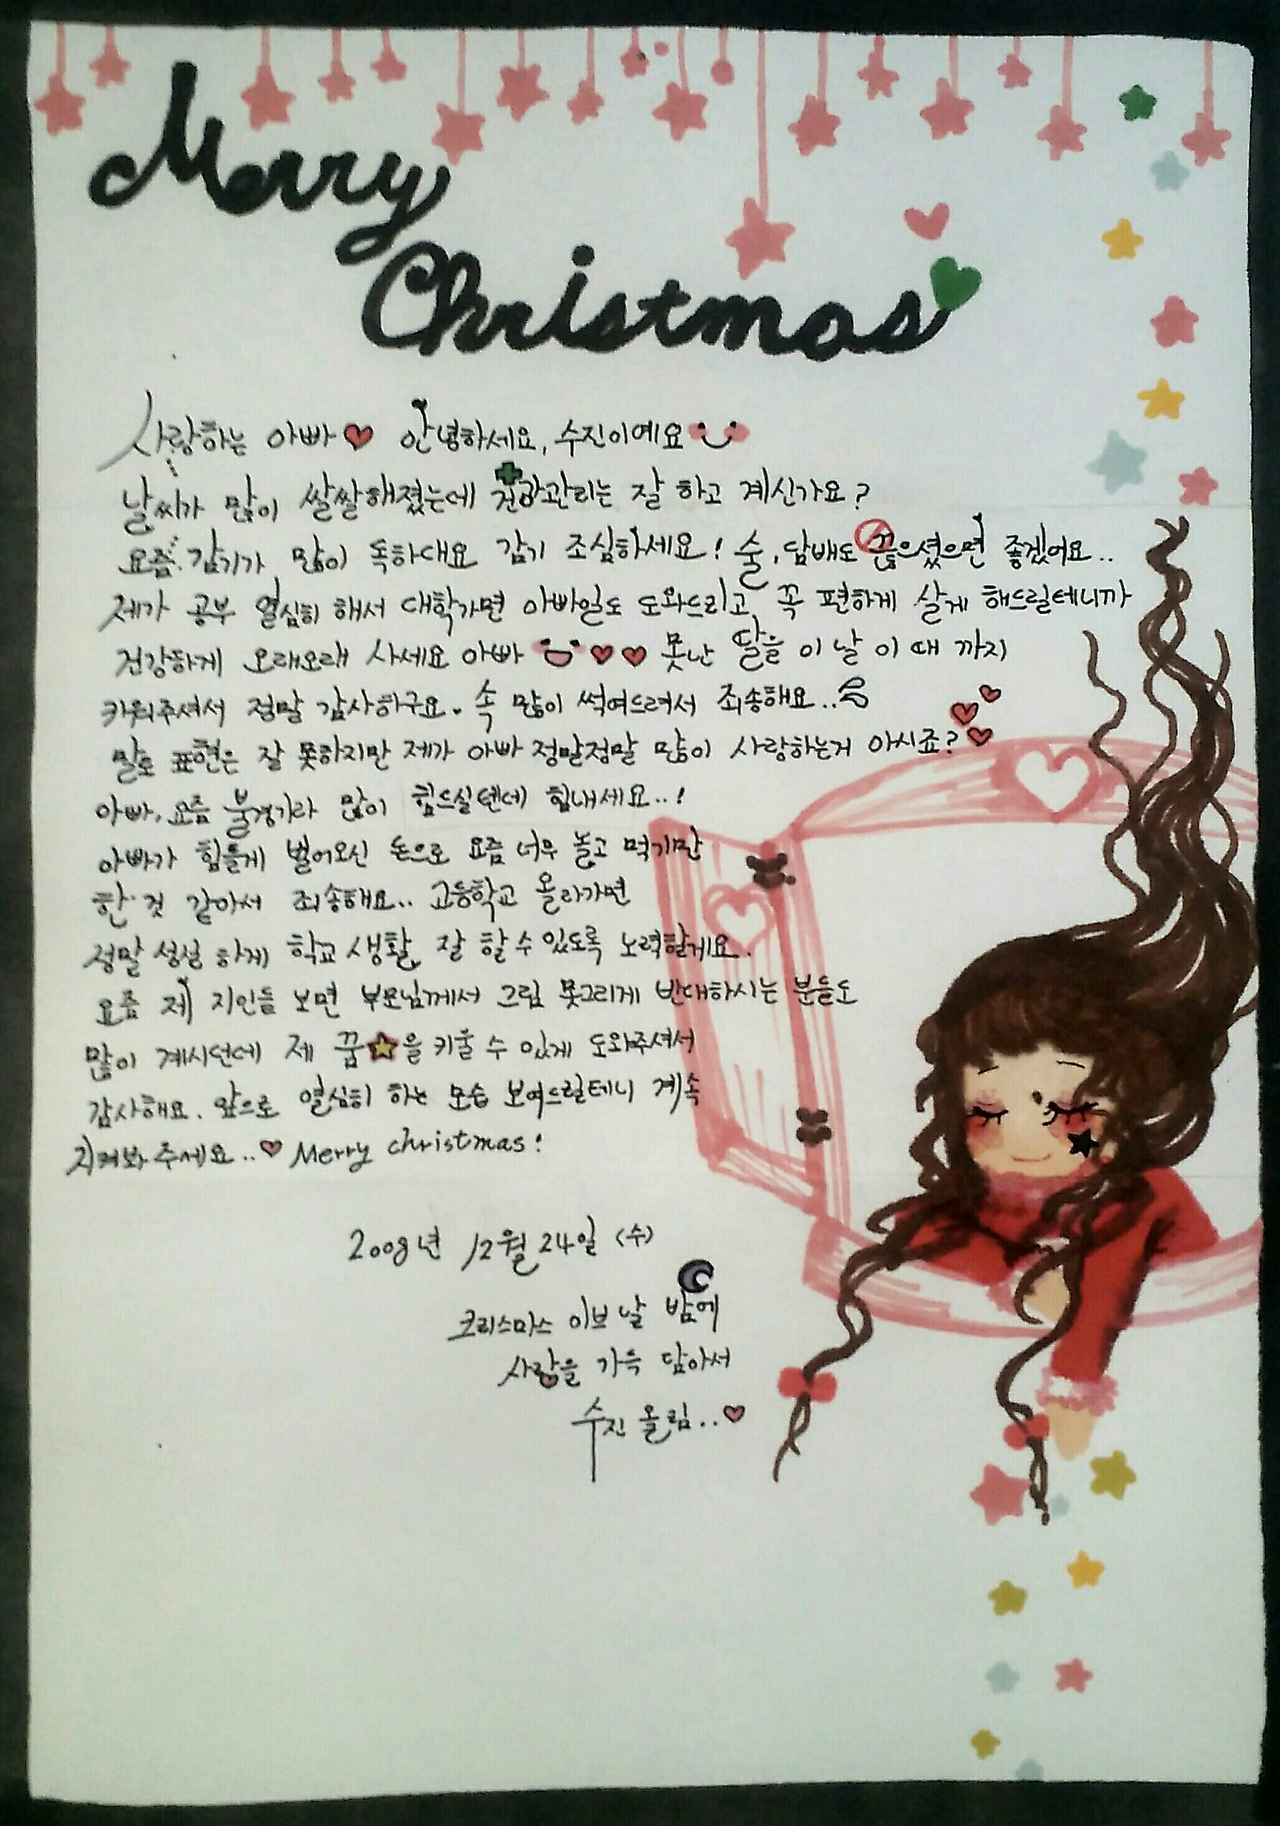 Merry
Christmas
사랑하는 아빠♥ 안녕하세요, 수진이예요
날씨가 많이 쌀쌀해졌는데 건강관리는 잘 하고 계신가요?
요즘 감기가 많이 독하대요 감기 조심하세요! 술, 담배도 끊으셨으면 좋겠어요..
제가 공부 열심히 해서 대학가면 아빠일도 도와드리고, 꼭 편하게 살게 해드릴테니까
건강하게 오래오래 사세요 아빠 ♥♥ 못난 딸을 이 날 이 때 까지
키워주셔서 정말 감사하구요. 속 많이 썩여드려서 죄송해요..
말로 표현은 잘 못하지만 제가 아빠 정말정말 많이 사랑하는거 아시죠?
아빠, 요즘 불경기라 많이 힘드실텐데 힘내세요..!
아빠가 힘들게 벌어오신 돈으로 요즘 너무 놀고 먹기만
한 것 같아서 죄송해요.. 고등학교 올라가면
정말 성실 하게 학교 생활 잘 할 수 있도록 노력할게요.
요즘 제 지인들 보면 부모님께서 그림 못그리게 반대하시는 분들도
많이 계시던데 제 꿈★을 키울 수 있게 도와주셔서
감사해요. 앞으로 열심히 하는 모습 보여드릴테니 계속
지켜봐 주세요..♥ Merry christmas!
2008년 12월 24일 (수)
크리스마스 이브 날 밤에
사랑을 가득 담아서
수진 올림..♥